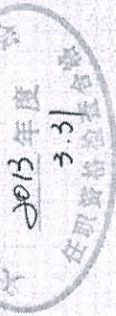 2013年度
3.31
任职资格检查合格